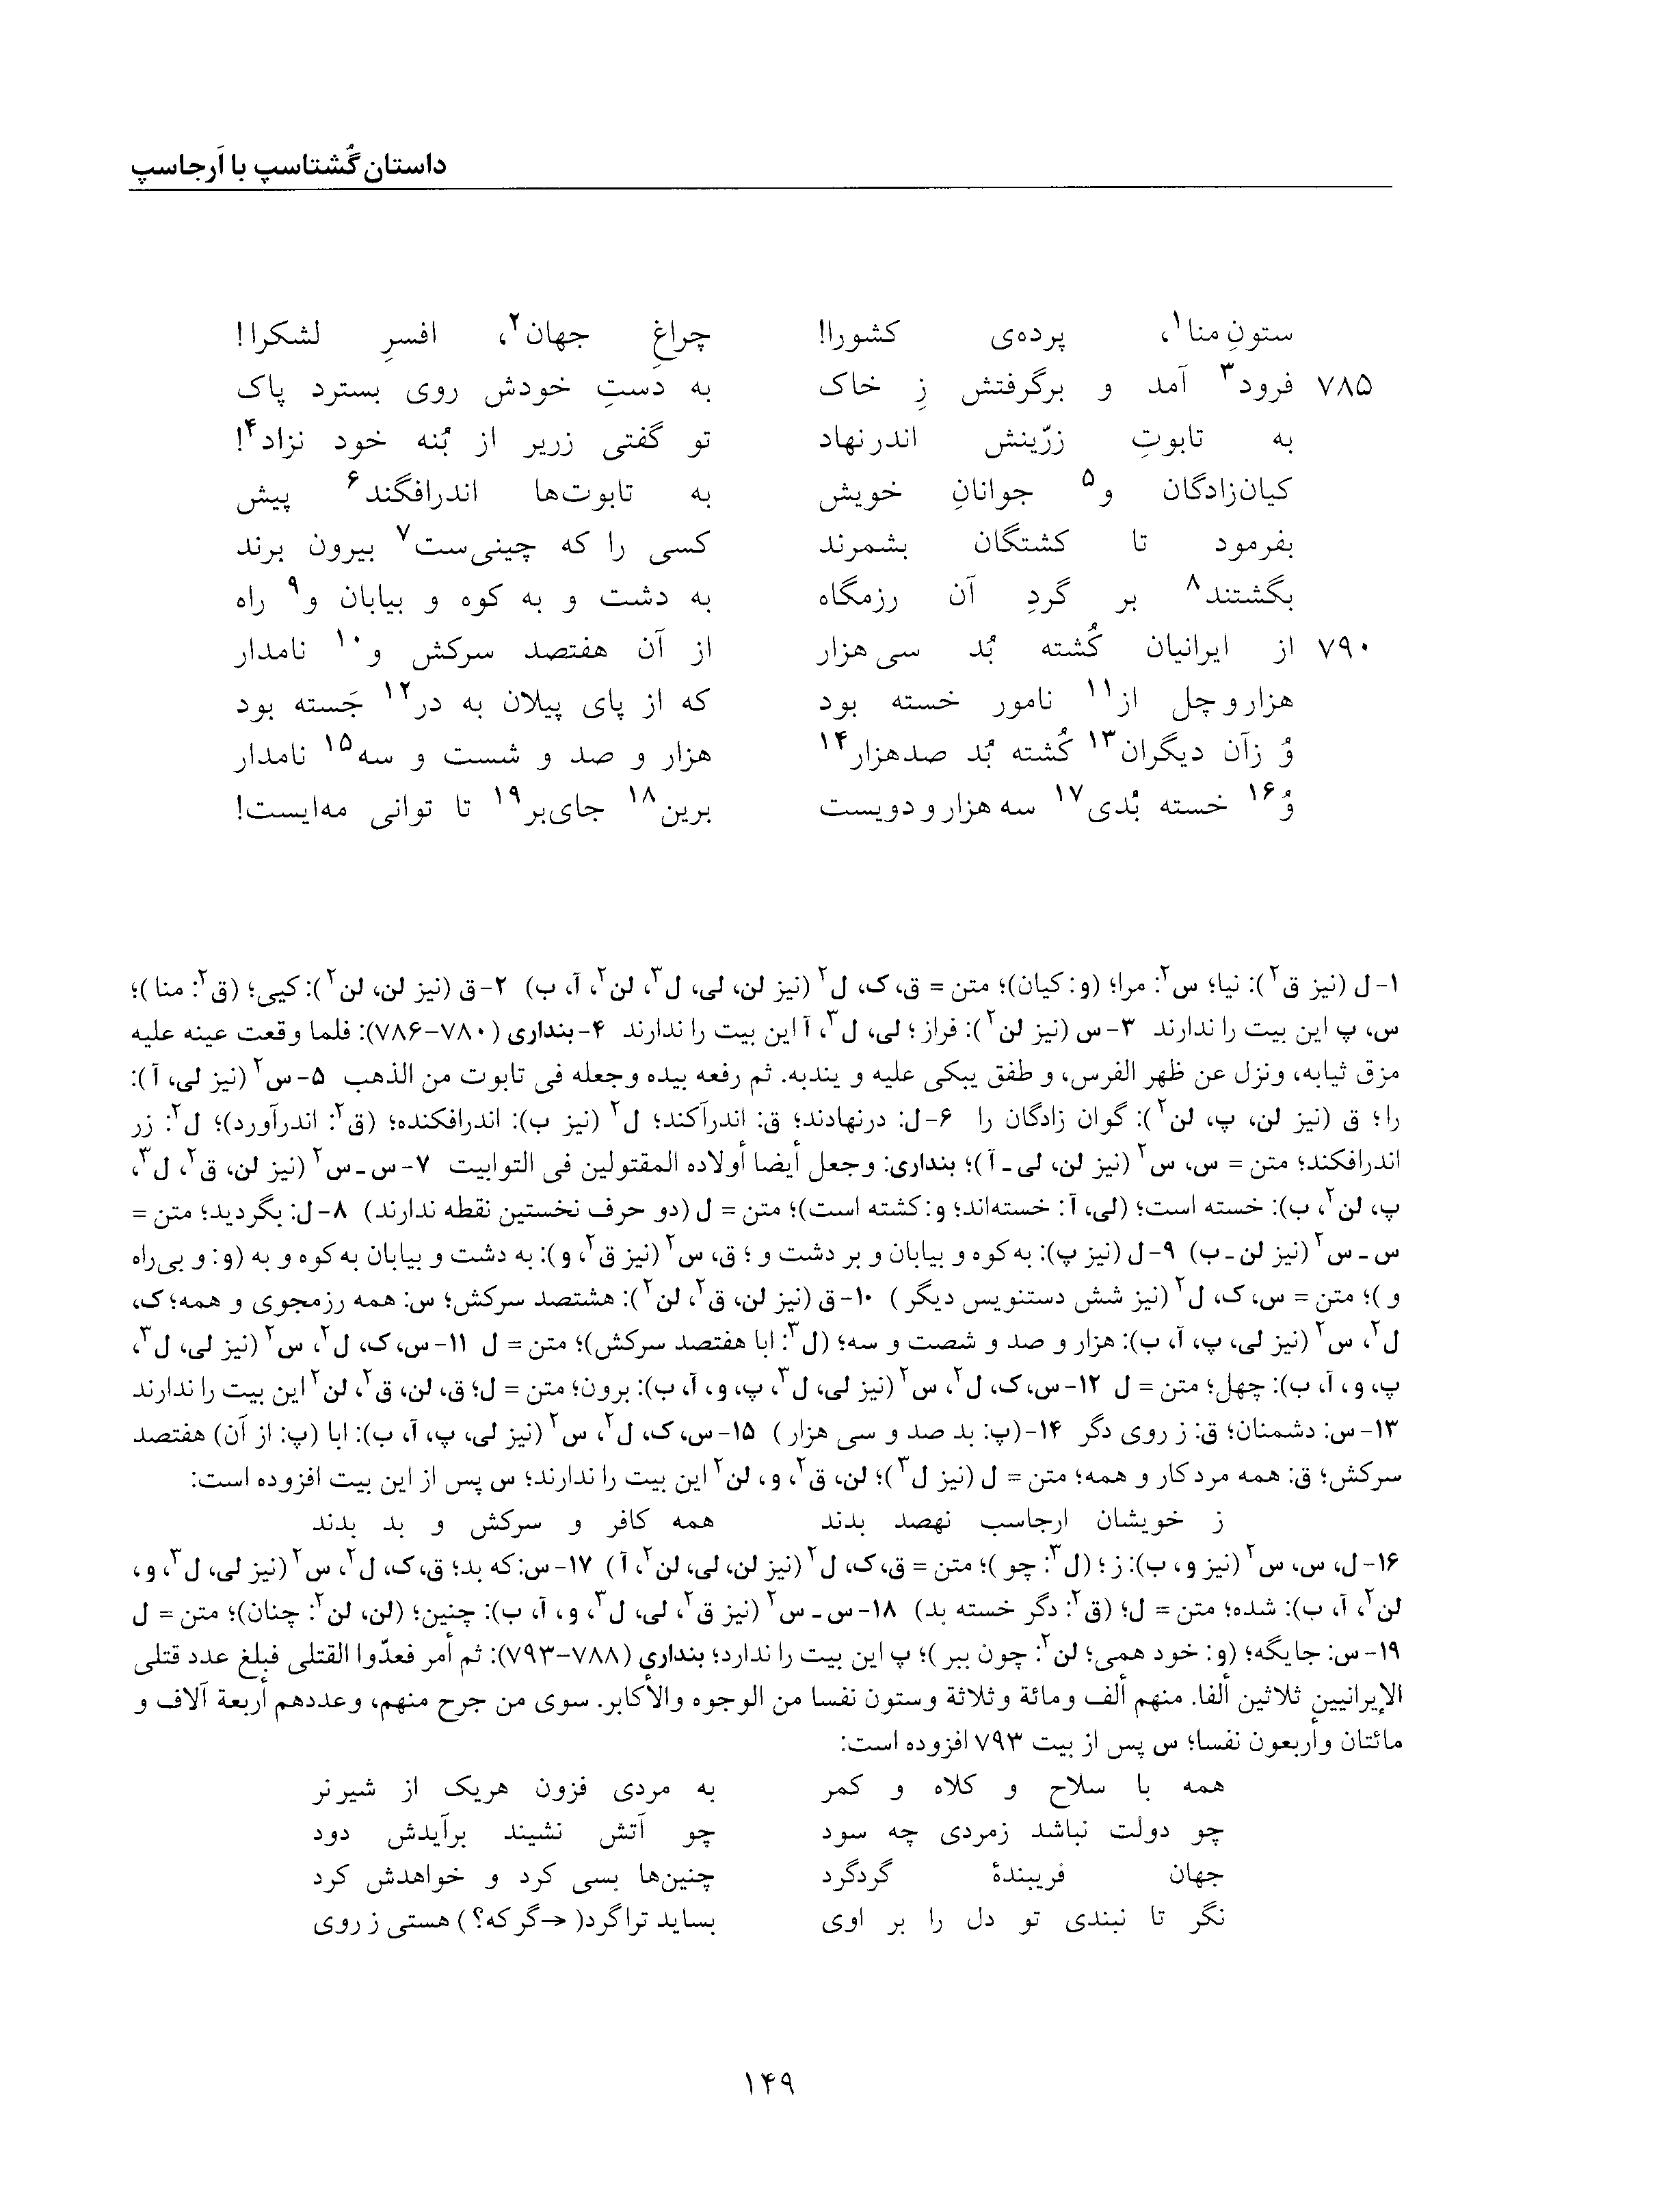 داستان گُشتاسپ با اَرجاسپ
ستونِ منا۱، پرده‌ی کشورا! چراغِ جهان۲، افسرِ لشکرا!
۷۸۵ فرود۳ آمد و برگرفتش زِ خاک به دستِ خودش روی بسترد پاک
به تابوتِ زرّینش اندرنهاد تو گفتی زریر از بُنه خود نزاد۴!
کیان‌زادگان و۵ جوانانِ خویش به تابوت‌ها اندرافگند۶ پیش
بفرمود تا کشتگان بشمرند کسی را که چینی‌ست۷ بیرون برند
بگشتند۸ بر گردِ آن رزمگاه به دشت و به کوه و بیابان و۹ راه
۷۹۰ از ایرانیان کُشته بُد سی هزار از آن هفتصد سرکش و۱۰ نامدار
هزار و چل از۱۱ نامور خسته بود که از پای پیلان به در۱۲ جَسته بود
وُ زآن دیگران۱۳ کُشته بُد صدهزار۱۴ هزار و صد و شست و سه۱۵ نامدار
وُ۱۶ خسته بُدی۱۷ سه هزار و دویست برین۱۸ جای‌بر۱۹ تا توانی مه‌ایست!
۱-ل (نیز ق۲): نیا؛ س۲: مرا؛ (و: کیان)؛ متن = ق، ک، ل۲ (نیز لن، لی، ل۳، لن۲، آ، ب) ۲-ق (نیز لن، لن۲): کیی؛ (ق۲: منا)؛
س، پ این بیت را ندارند ۳-س (نیز لن۲): فراز؛ لی، ل۳، آ این بیت را ندارند ۴-بنداری (۷۸۰-۷۸۶): فلما وقعت عینه علیه
مزق ثیابه، ونزل عن ظهر الفرس، و طفق یبکی علیه و یندبه. ثم رفعه بیده وجعله فی تابوت من الذهب ۵-س۲ (نیز لی، آ):
را؛ ق (نیز لن، پ، لن۲): گوان زادگان را ۶-ل: درنهادند؛ ق: اندرآکند؛ ل۲ (نیز ب): اندرافکنده؛ (ق۲: اندرآورد)؛ ل۲: زر
اندرافکند؛ متن = س، س۲ (نیز لن، لی ـ آ)؛ بنداری: وجعل أیضا أولاده المقتولین فی التوابیت ۷-س ـ س۲ (نیز لن، ق۲، ل۳،
پ، لن۲، ب): خسته است؛ (لی، آ: خسته‌اند؛ و: کشته است)؛ متن = ل (دو حرف نخستین نقطه ندارند) ۸-ل: بگردید؛ متن =
س ـ س۲ (نیز لن ـ ب) ۹-ل (نیز پ): به کوه و بیابان و بر دشت و؛ ق، س۲ (نیز ق۲، و): به دشت و بیابان به کوه و به (و: و بی‌راه
و)؛ متن = س، ک، ل۲ (نیز شش دستنویس دیگر) ۱۰-ق (نیز لن، ق۲، لن۲): هشتصد سرکش؛ س: همه رزمجوی و همه؛ ک،
ل۲، س۲ (نیز لی، پ، آ، ب): هزار و صد و شصت و سه؛ (ل۳: ابا هفتصد سرکش)؛ متن = ل ۱۱-س، ک، ل۲، س۲ (نیز لی، ل۳،
پ، و، آ، ب): چهل؛ متن = ل ۱۲-س، ک، ل۲، س۲ (نیز لی، ل۳، پ، و، آ، ب): برون؛ متن = ل؛ ق، لن، ق۲، لن۲ این بیت را ندارند
۱۳-س: دشمنان؛ ق: ز روی دگر ۱۴-(پ: بد صد و سی هزار) ۱۵-س، ک، ل۲، س۲ (نیز لی، پ، آ، ب): ابا (پ: از آن) هفتصد
سرکش؛ ق: همه مردکار و همه؛ متن = ل (نیز ل۳)؛ لن، ق۲، و، لن۲ این بیت را ندارند؛ س پس از این بیت افزوده است:
ز خویشان ارجاسب نهصد بدند همه کافر و سرکش و بد بدند
۱۶-ل، س، س۲ (نیز و، ب): ز؛ (ل۳: چو)؛ متن = ق، ک، ل۲ (نیز لن، لی، لن۲، آ) ۱۷-س: که بد؛ ق، ک، ل۲، س۲ (نیز لی، ل۳، و،
لن۲، آ، ب): شده؛ متن = ل؛ (ق۲: دگر خسته بد) ۱۸-س ـ س۲ (نیز ق۲، لی، ل۳، و، آ، ب): چنین؛ (لن، لن۲: چنان)؛ متن = ل
۱۹-س: جایگه؛ (و: خود همی؛ لن۲: چون ببر)؛ پ این بیت را ندارد؛ بنداری (۷۸۸-۷۹۳): ثم أمر فعدّوا القتلی فبلغ عدد قتلی
الإیرانیین ثلاثین ألفا. منهم ألف ومائة وثلاثة وستون نفسا من الوجوه والأکابر. سوی من جرح منهم، وعددهم أربعة آلاف و
مائتان وأربعون نفسا؛ س پس از بیت ۷۹۳ افزوده است:
همه با سلاح و کلاه و کمر به مردی فزون هریک از شیر نر
چو دولت نباشد زمردی چه سود چو آتش نشیند برآیدش دود
جهان فریبندهٔ گردگرد چنین‌ها بسی کرد و خواهدش کرد
نگر تا نبندی تو دل را بر اوی بساید ترا گرد(→گر که؟) هستی ز روی
۱۴۹